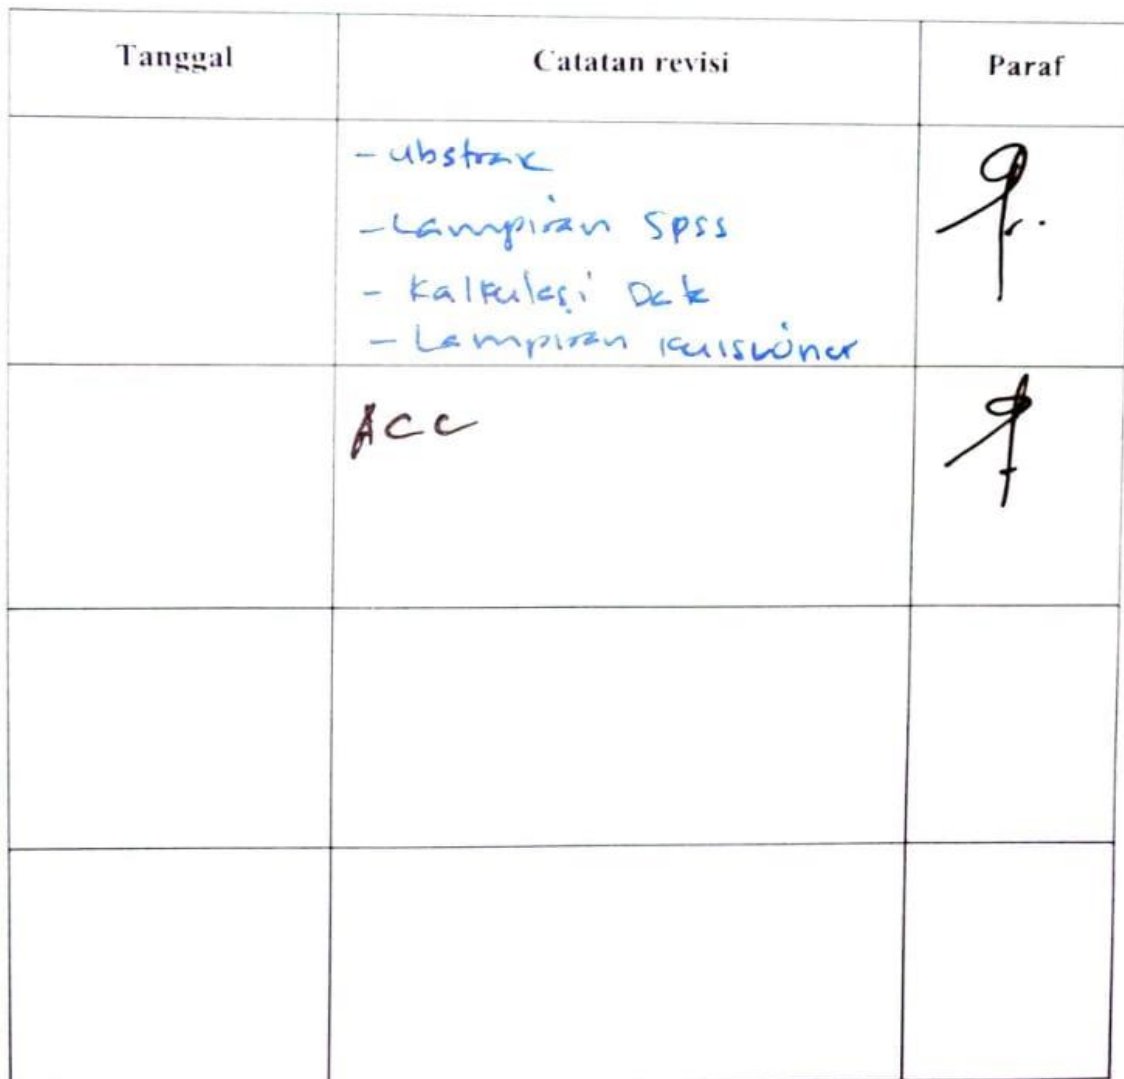 Tanggal Catatan revisi Paraf
- abstrak
- Lampiran SPSS
- Kalkulasi Data
- Lampiran kuisioner
ACC